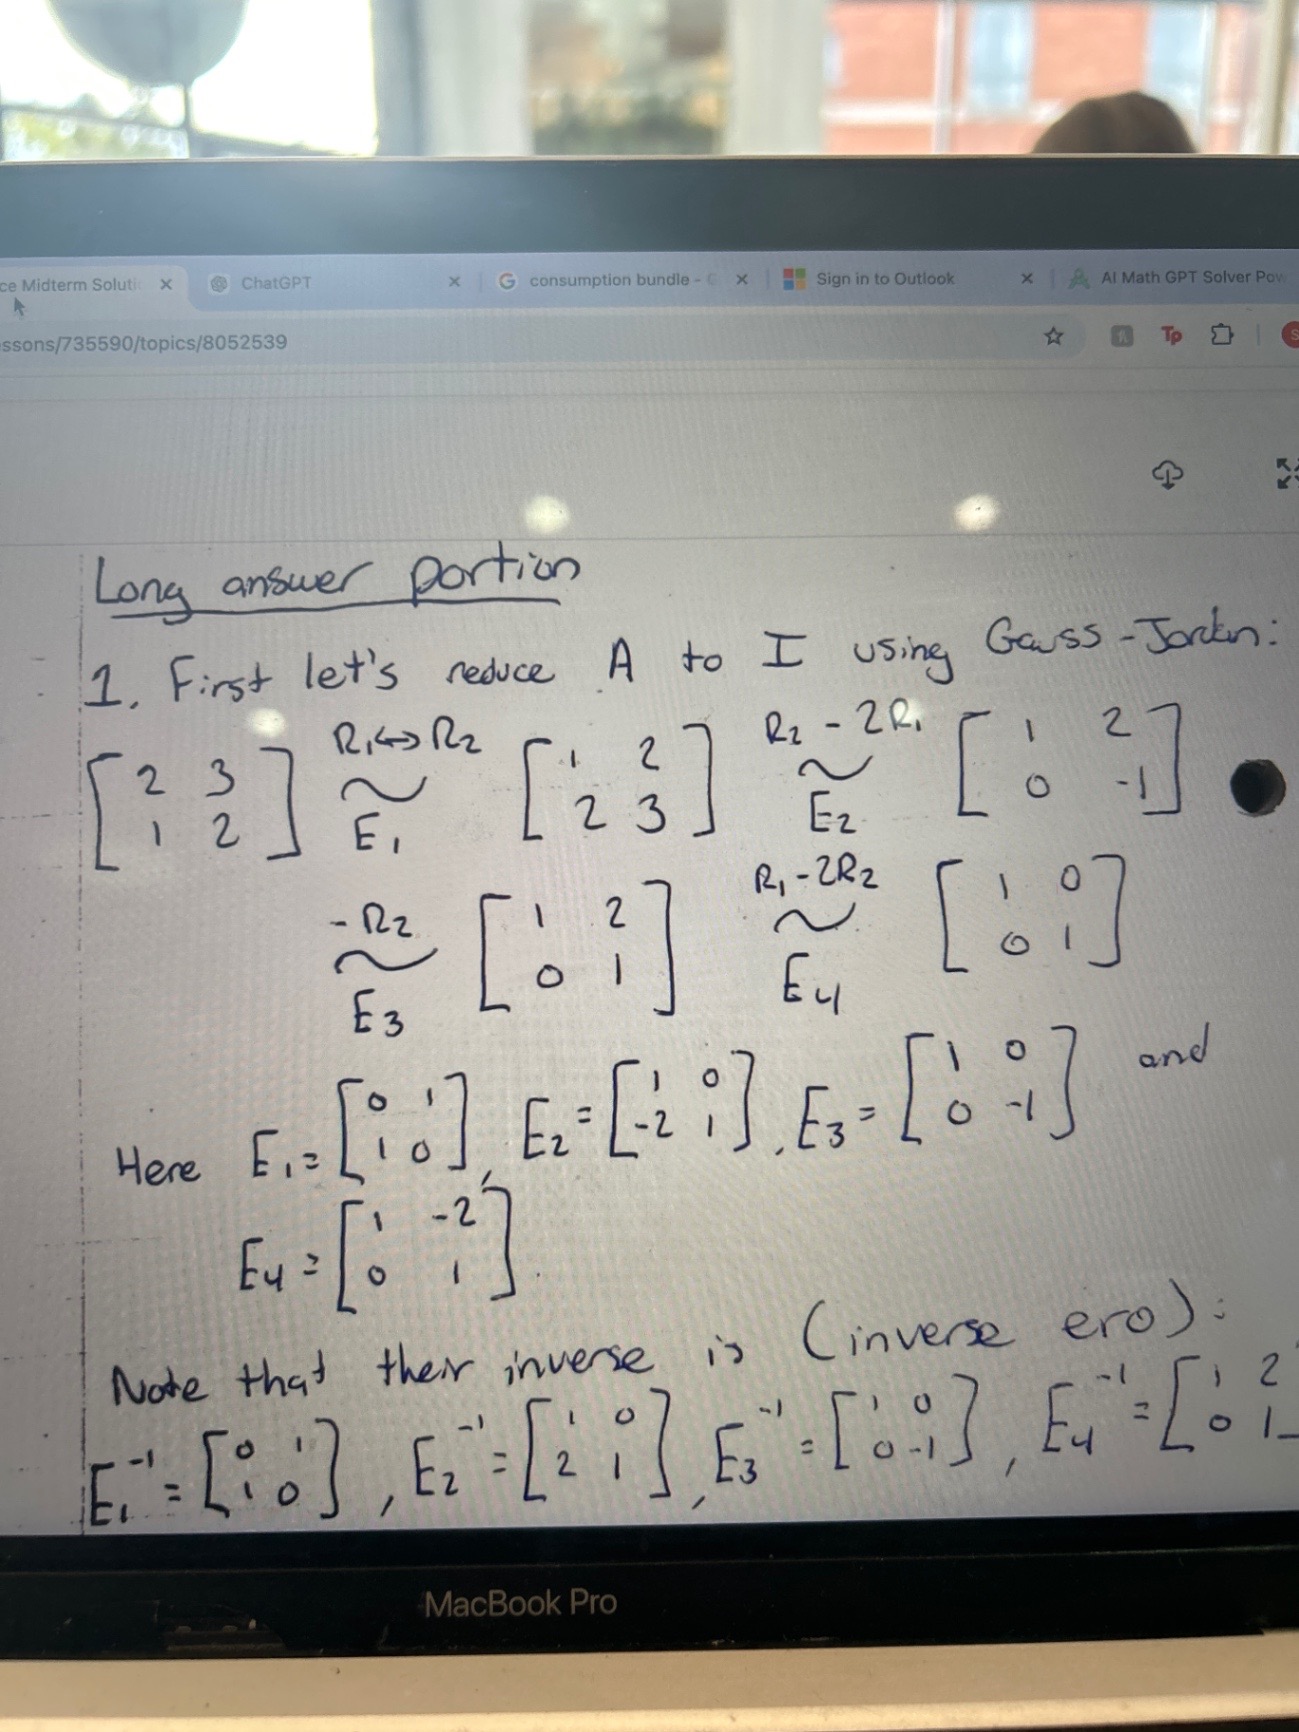 ce Midterm Soluti × ChatGPT × consumption bundle - G × Sign in to Outlook × AI Math GPT Solver Pow
ssons/735590/topics/8052539
Tp
S
Long answer portion
1. First let's reduce A to I using Gauss-Jordan:
[2 3; 1 2] R₁↔R₂ ~ E₁ [1 2; 2 3] R₂ - 2R₁ ~ E₂ [1 2; 0 -1]
-R₂ ~ E₃ [1 2; 0 1] R₁-2R₂ ~ E₄ [1 0; 0 1]
Here E₁ = [0 1; 1 0], E₂ = [1 0; -2 1], E₃ = [1 0; 0 -1] and
E₄ = [1 -2; 0 1].
Note that their inverse is (inverse ero):
E₁⁻¹ = [0 1; 1 0], E₂⁻¹ = [1 0; 2 1], E₃⁻¹ = [1 0; 0 -1], E₄⁻¹ = [1 2; 0 1]
MacBook Pro